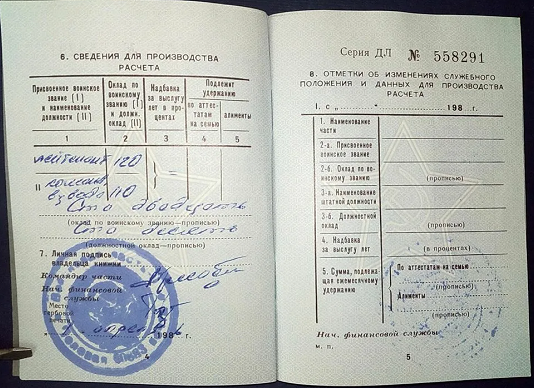 6. СВЕДЕНИЯ ДЛЯ ПРОИЗВОДСТВА
РАСЧЕТА
Присвоенное воинское звание (I) и наименование должности (II)
Оклад по воинскому званию (I) и должн. оклад (II)
Надбавка за выслугу лет в процентах
Подлежит удержанию
по аттестатам на семью
алименты
1 2 3 4 5
лейтенант 120
II команд. взвода 110
Сто двадцать
(оклад по воинскому званию—прописью)
Сто десять
(должностной оклад—прописью)
7. Личная подпись
владельца книжки
Командир части
Нач. финансовой
службы
Место
гербовой
печати
198 г.
4
Серия ДЛ № 558291
8. ОТМЕТКИ ОБ ИЗМЕНЕНИЯХ СЛУЖЕБНОГО
ПОЛОЖЕНИЯ И ДАННЫХ ДЛЯ ПРОИЗВОДСТВА
РАСЧЕТА
I. с „ “ 198 г.
1. Наименование
части
2-а. Присвоенное
воинское звание
2-б. Оклад по во-
инскому званию
(прописью)
3-а. Наименование
штатной должности
3-б. Должностной
оклад
(прописью)
4. Надбавка за
выслугу лет
(в процентах)
5. Сумма, подлежа-
щая ежемесячному
удержанию
По аттестатам на семью
(прописью)
Алименты
(прописью)
Нач. финансовой службы
м. п.
5